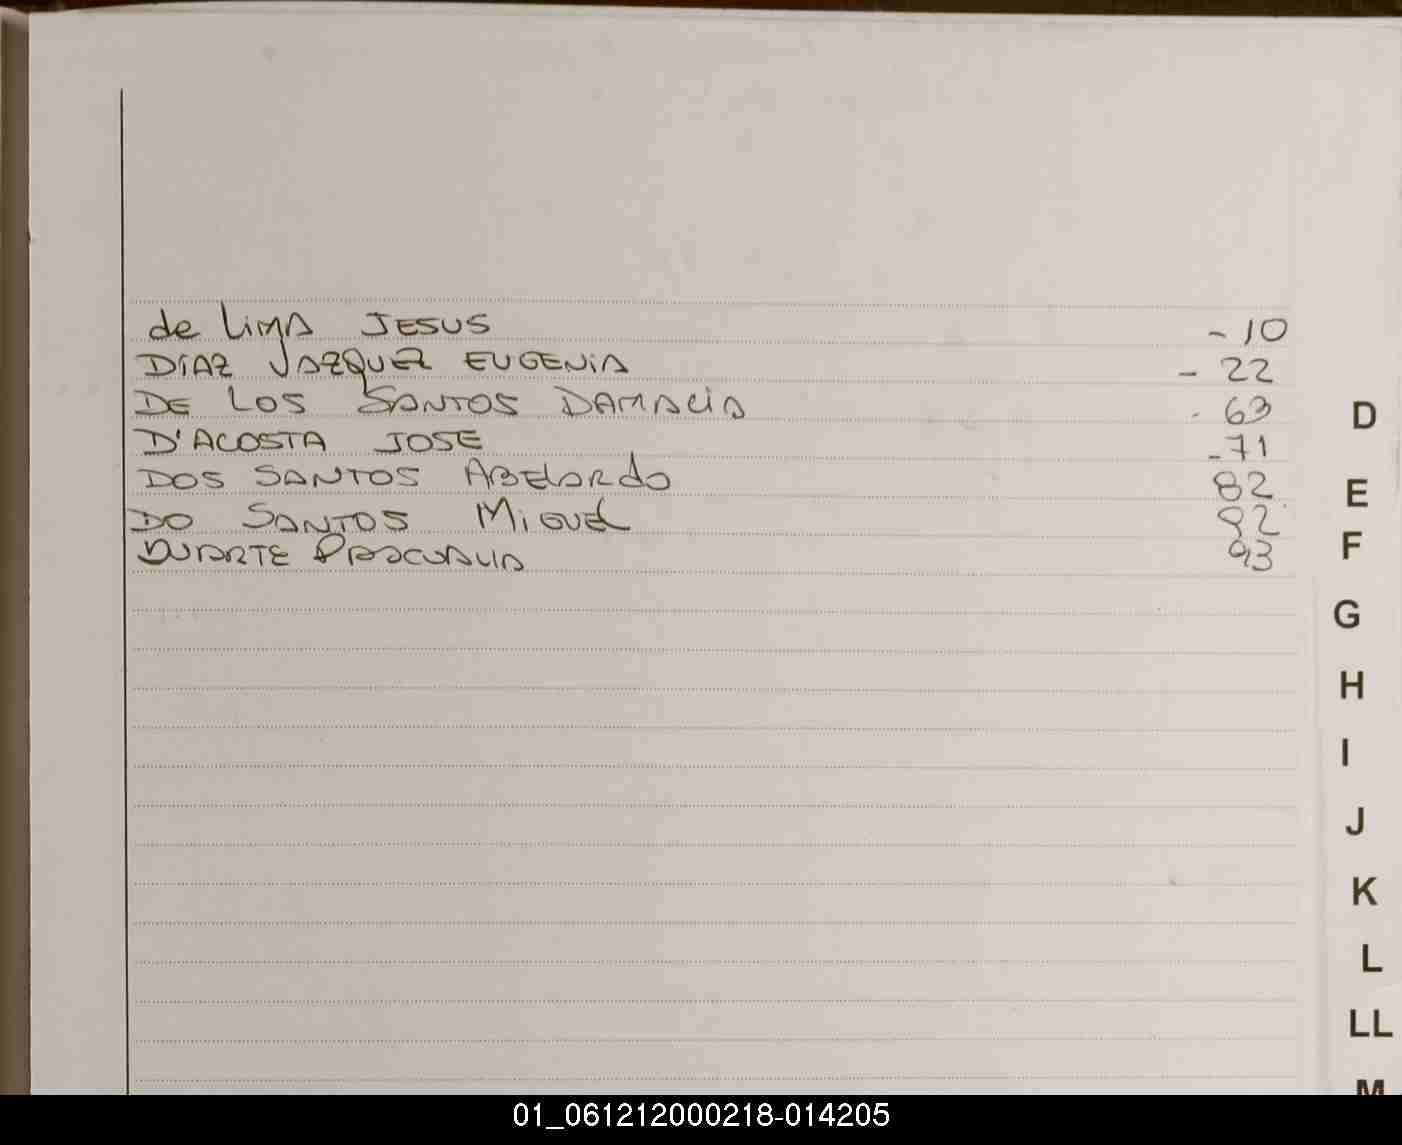 de Lima JESUS - 10
DIAZ VAZQUEZ EUGENIA - 22
DE LOS SANTOS DAMACIA - 63
D'ACOSTA JOSE - 71
DOS SANTOS ABELARDO 82
DO SANTOS MIGUEL 92
DUARTE PASCUALIA 93
D
E
F
G
H
I
J
K
L
LL
M
01_061212000218-014205